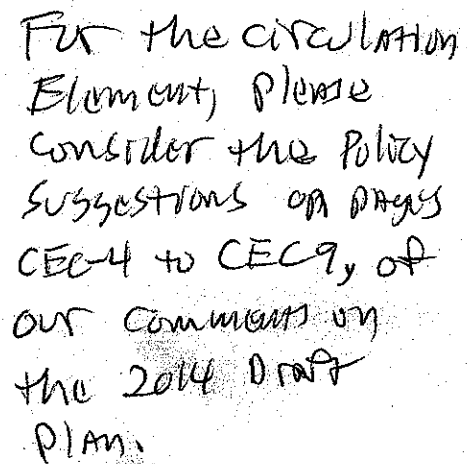 For the circulation
Element, please
consider the Policy
Suggestions on pages
CEC-4 to CEC9, of
our comments on
the 2014 Draft
Plan.